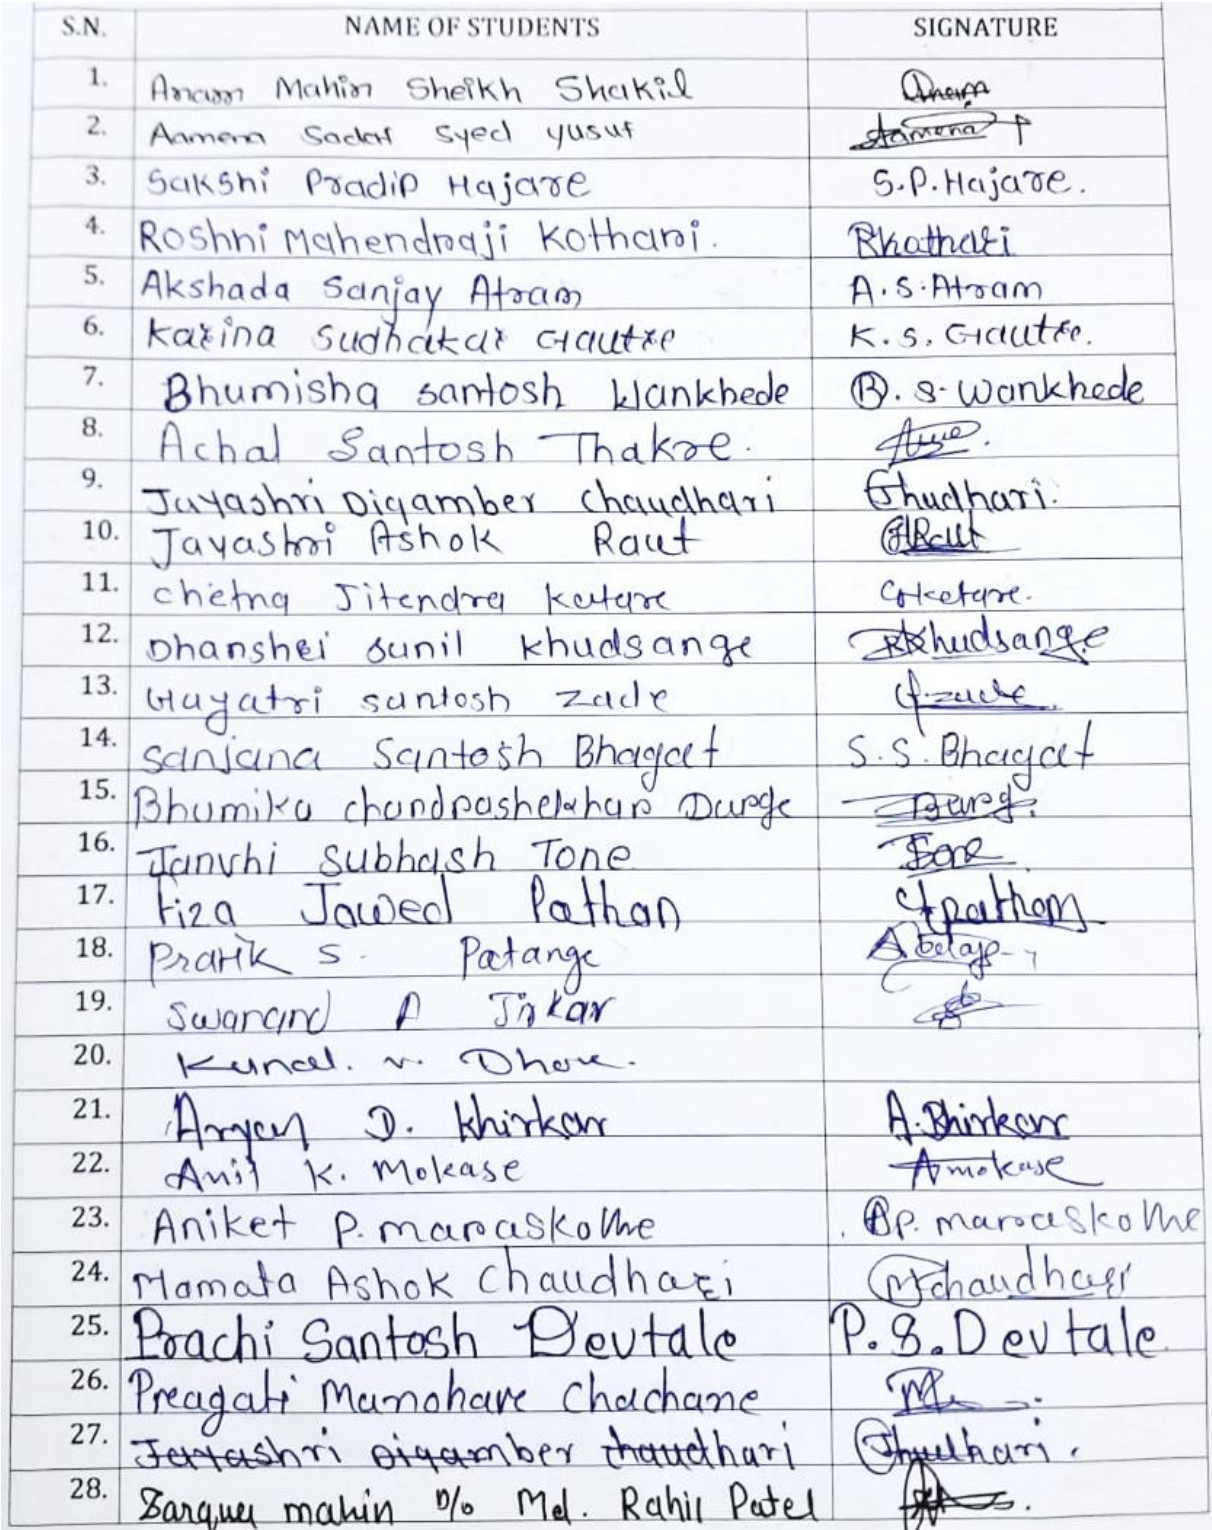 S.N. NAME OF STUDENTS SIGNATURE
1. Anam Mahin Sheikh Shakil Anam
2. Aamena Sadaf Syed yusuf Aamena
3. Sakshi Pradip Hajare S.P. Hajare.
4. Roshni Mahendraji Kothari. Rkothari
5. Akshada Sanjay Atram A.S. Atram
6. Karina Sudhakar Gautre K.S. Gautre.
7. Bhumisha santosh Wankhede B. S. Wankhede
8. Achal Santosh Thakre.
9. Jayashri Digamber chaudhari Chudhari.
10. Jayashri Ashok Raut JARaut
11. chetna Jitendra Katare
12. Dhanshri sunil khudsange Khudsange
13. Gayatri santosh zade G.zade
14. Sanjana Santosh Bhagat S.S. Bhagat
15. Bhumika chandrashekhar Durge Durge.
16. Janvhi Subhash Tone Tone
17. Fiza Jawed Pathan Fpathan
18. Pratik S. Patange
19. Swanand A Jirkar
20. Kunal. v. Dhore.
21. Aryan D. Khirkar A. Khirkar
22. Anil K. Mokase Amokase
23. Aniket P. maraskolhe AP. maraskolhe
24. Mamata Ashok Chaudhari Mchaudhari
25. Prachi Santosh Devtale P.S. Devtale
26. Preagati Manohare Chachane
27. Jayashri Digamber chaudhari Chudhari.
28. mahin D/o Md. Rahil Patel